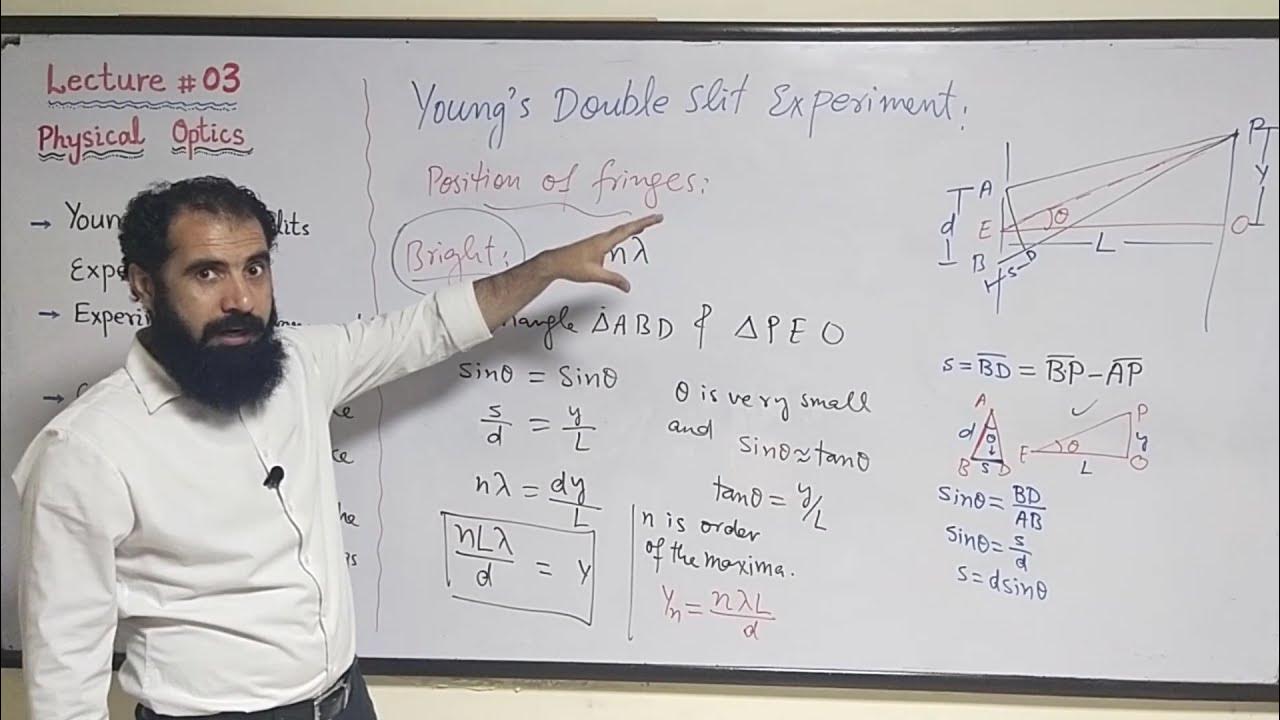 Lecture # 03
Physical Optics
→ Youn
lits
Expe
→ Experi
Young's Double Slit Experiment:
Position of fringes:
Bright:
nλ
ΔABD & ΔPEO
sinθ = Sinθ
s/d = y/L
nλ = dy/L
nLλ/d = y
θ is very small
and sinθ≈tanθ
tanθ = y/L
n is order
of the maxima.
Yn = nλL/d
P
A
y
d
E
θ
O
L
B
D
s
s = BD = BP - AP
A
P
d
θ
y
E
θ
B
s
D
L
O
sinθ = BD/AB
sinθ = s/d
s = dsinθ